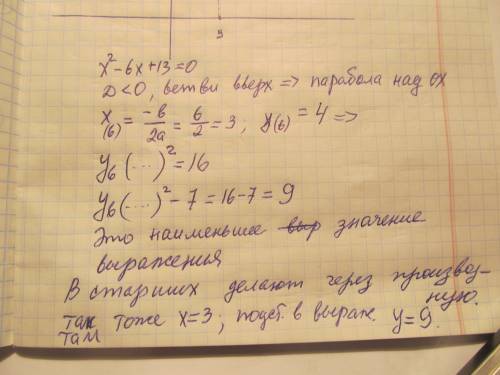 3
x² - 6x + 13 = 0
D < 0, ветви вверх => парабола над ох
x(в) = -в/2a = 6/2 = 3; y(в) = 4 =>
yв (...)² = 16
yв (...)² - 7 = 16 - 7 = 9
Это наименьшее выр значение
выраженья
В старших делают через производ-
ную.
так тоже x = 3; подст. в выраж. y = 9.
там